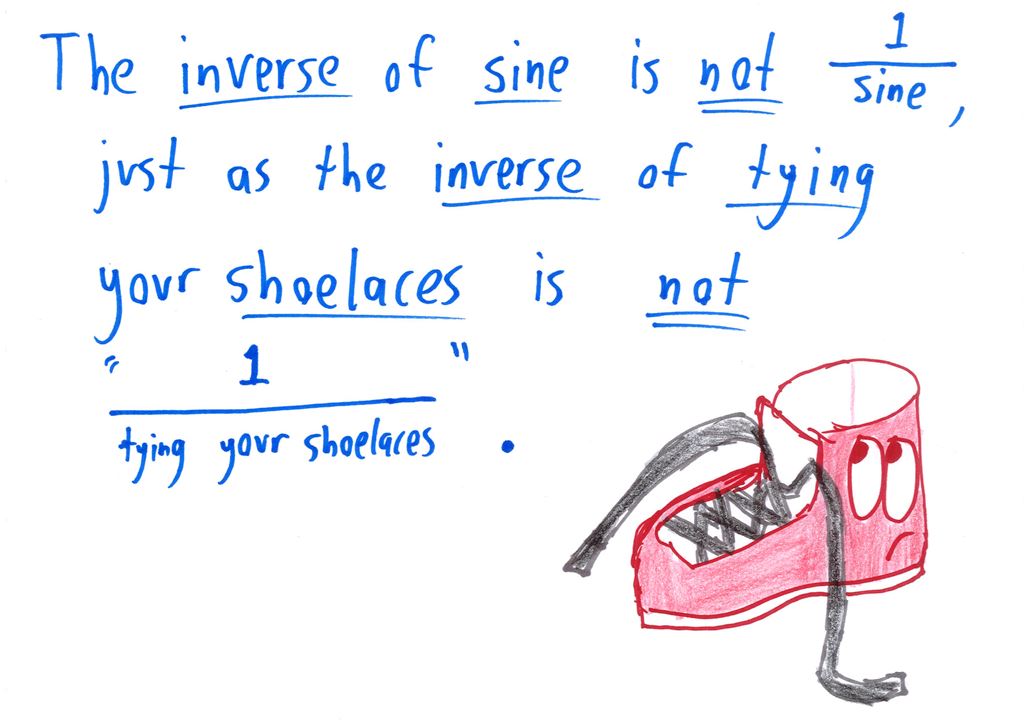 The inverse of sine is not 1/sine,
just as the inverse of tying
your shoelaces is not
" 1 "
tying your shoelaces .